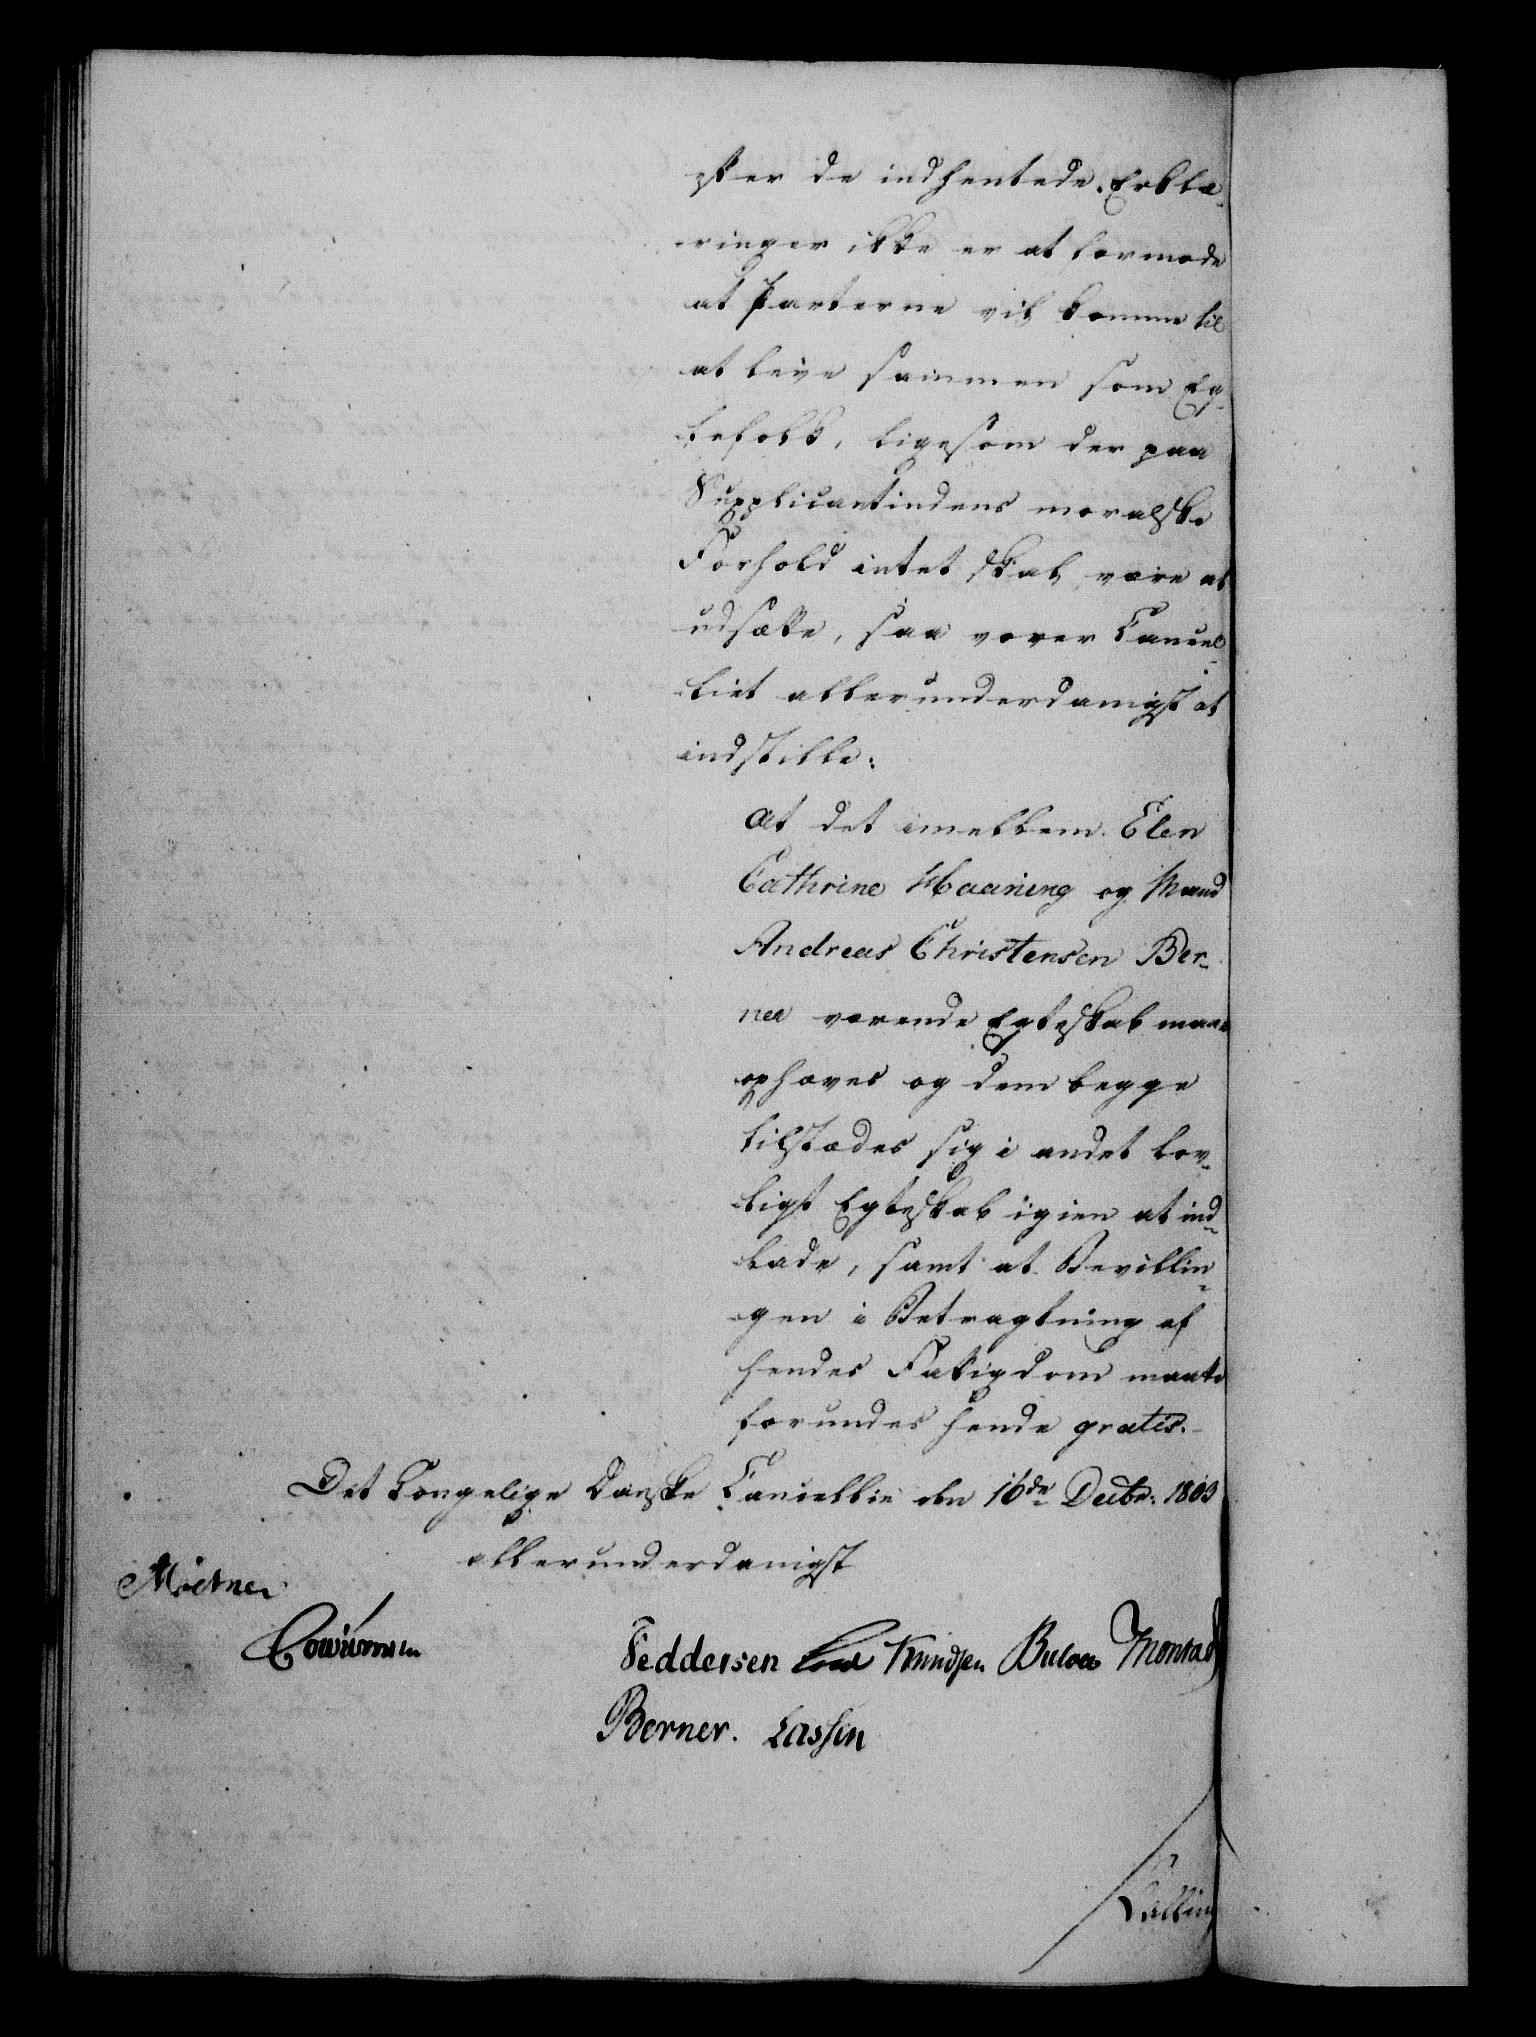 efter de indhentede Erklæ-
ringer ikke er at formode
at Parterne vil komme til
at leve sammen som Eg-
tefolk, ligesom der paa
Supplicantindens moralske
Forhold intet skal være at
udsætte, saa vover Cancel-
liet allerunderdanigst at
indstille:
at det imellem Elen
Cathrine Haaning og Mand
Andreas Christensen Ber-
ner værende Egteskab maae
ophæves og dem begge
tilstædes sig i andet lov-
ligt Egteskab igien at ind-
lade, samt at Bevillin-
gen i Betragtning af
hendes Fattigdom maatte
forundes hende gratis.
Det Kongelige Danske Cancellie den 16de Decbr: 1803
allerunderdanigst
Møstner
Cowsman
Feddersen Knudsen Bülow Monrad
Berner. Lassen
Lassen